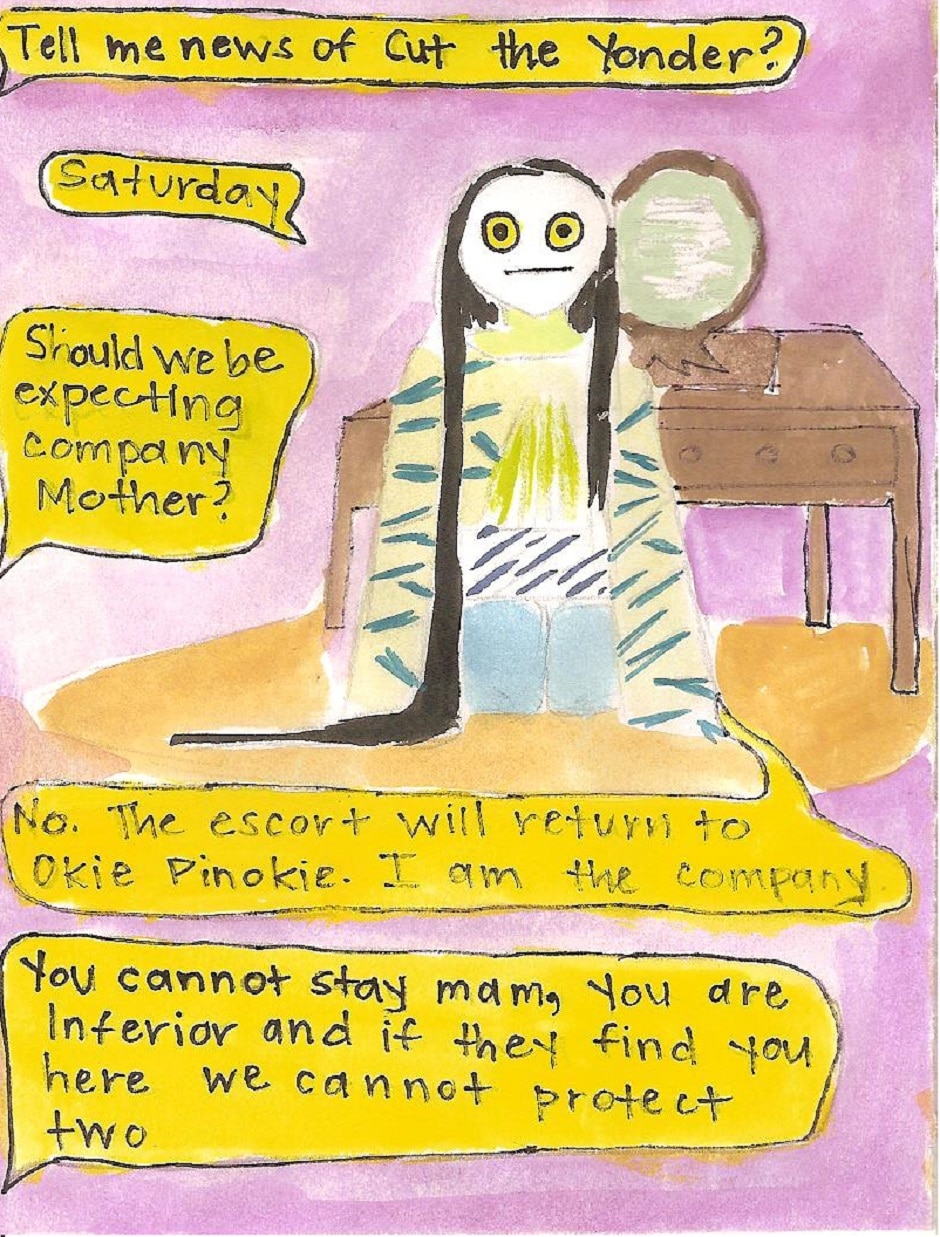 Tell me news of Cut the Yonder?
Saturday
Should we be
expecting
company
Mother?
No. The escort will return to
Okie Pinokie. I am the company.
You cannot stay mam, you are
Inferior and if they find you
here we cannot protect
two